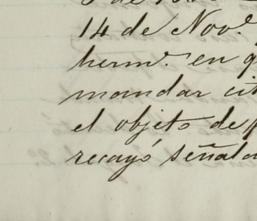 14 de Nov.e
herm.o en q
mandar cit
el objeto de
recayó señala